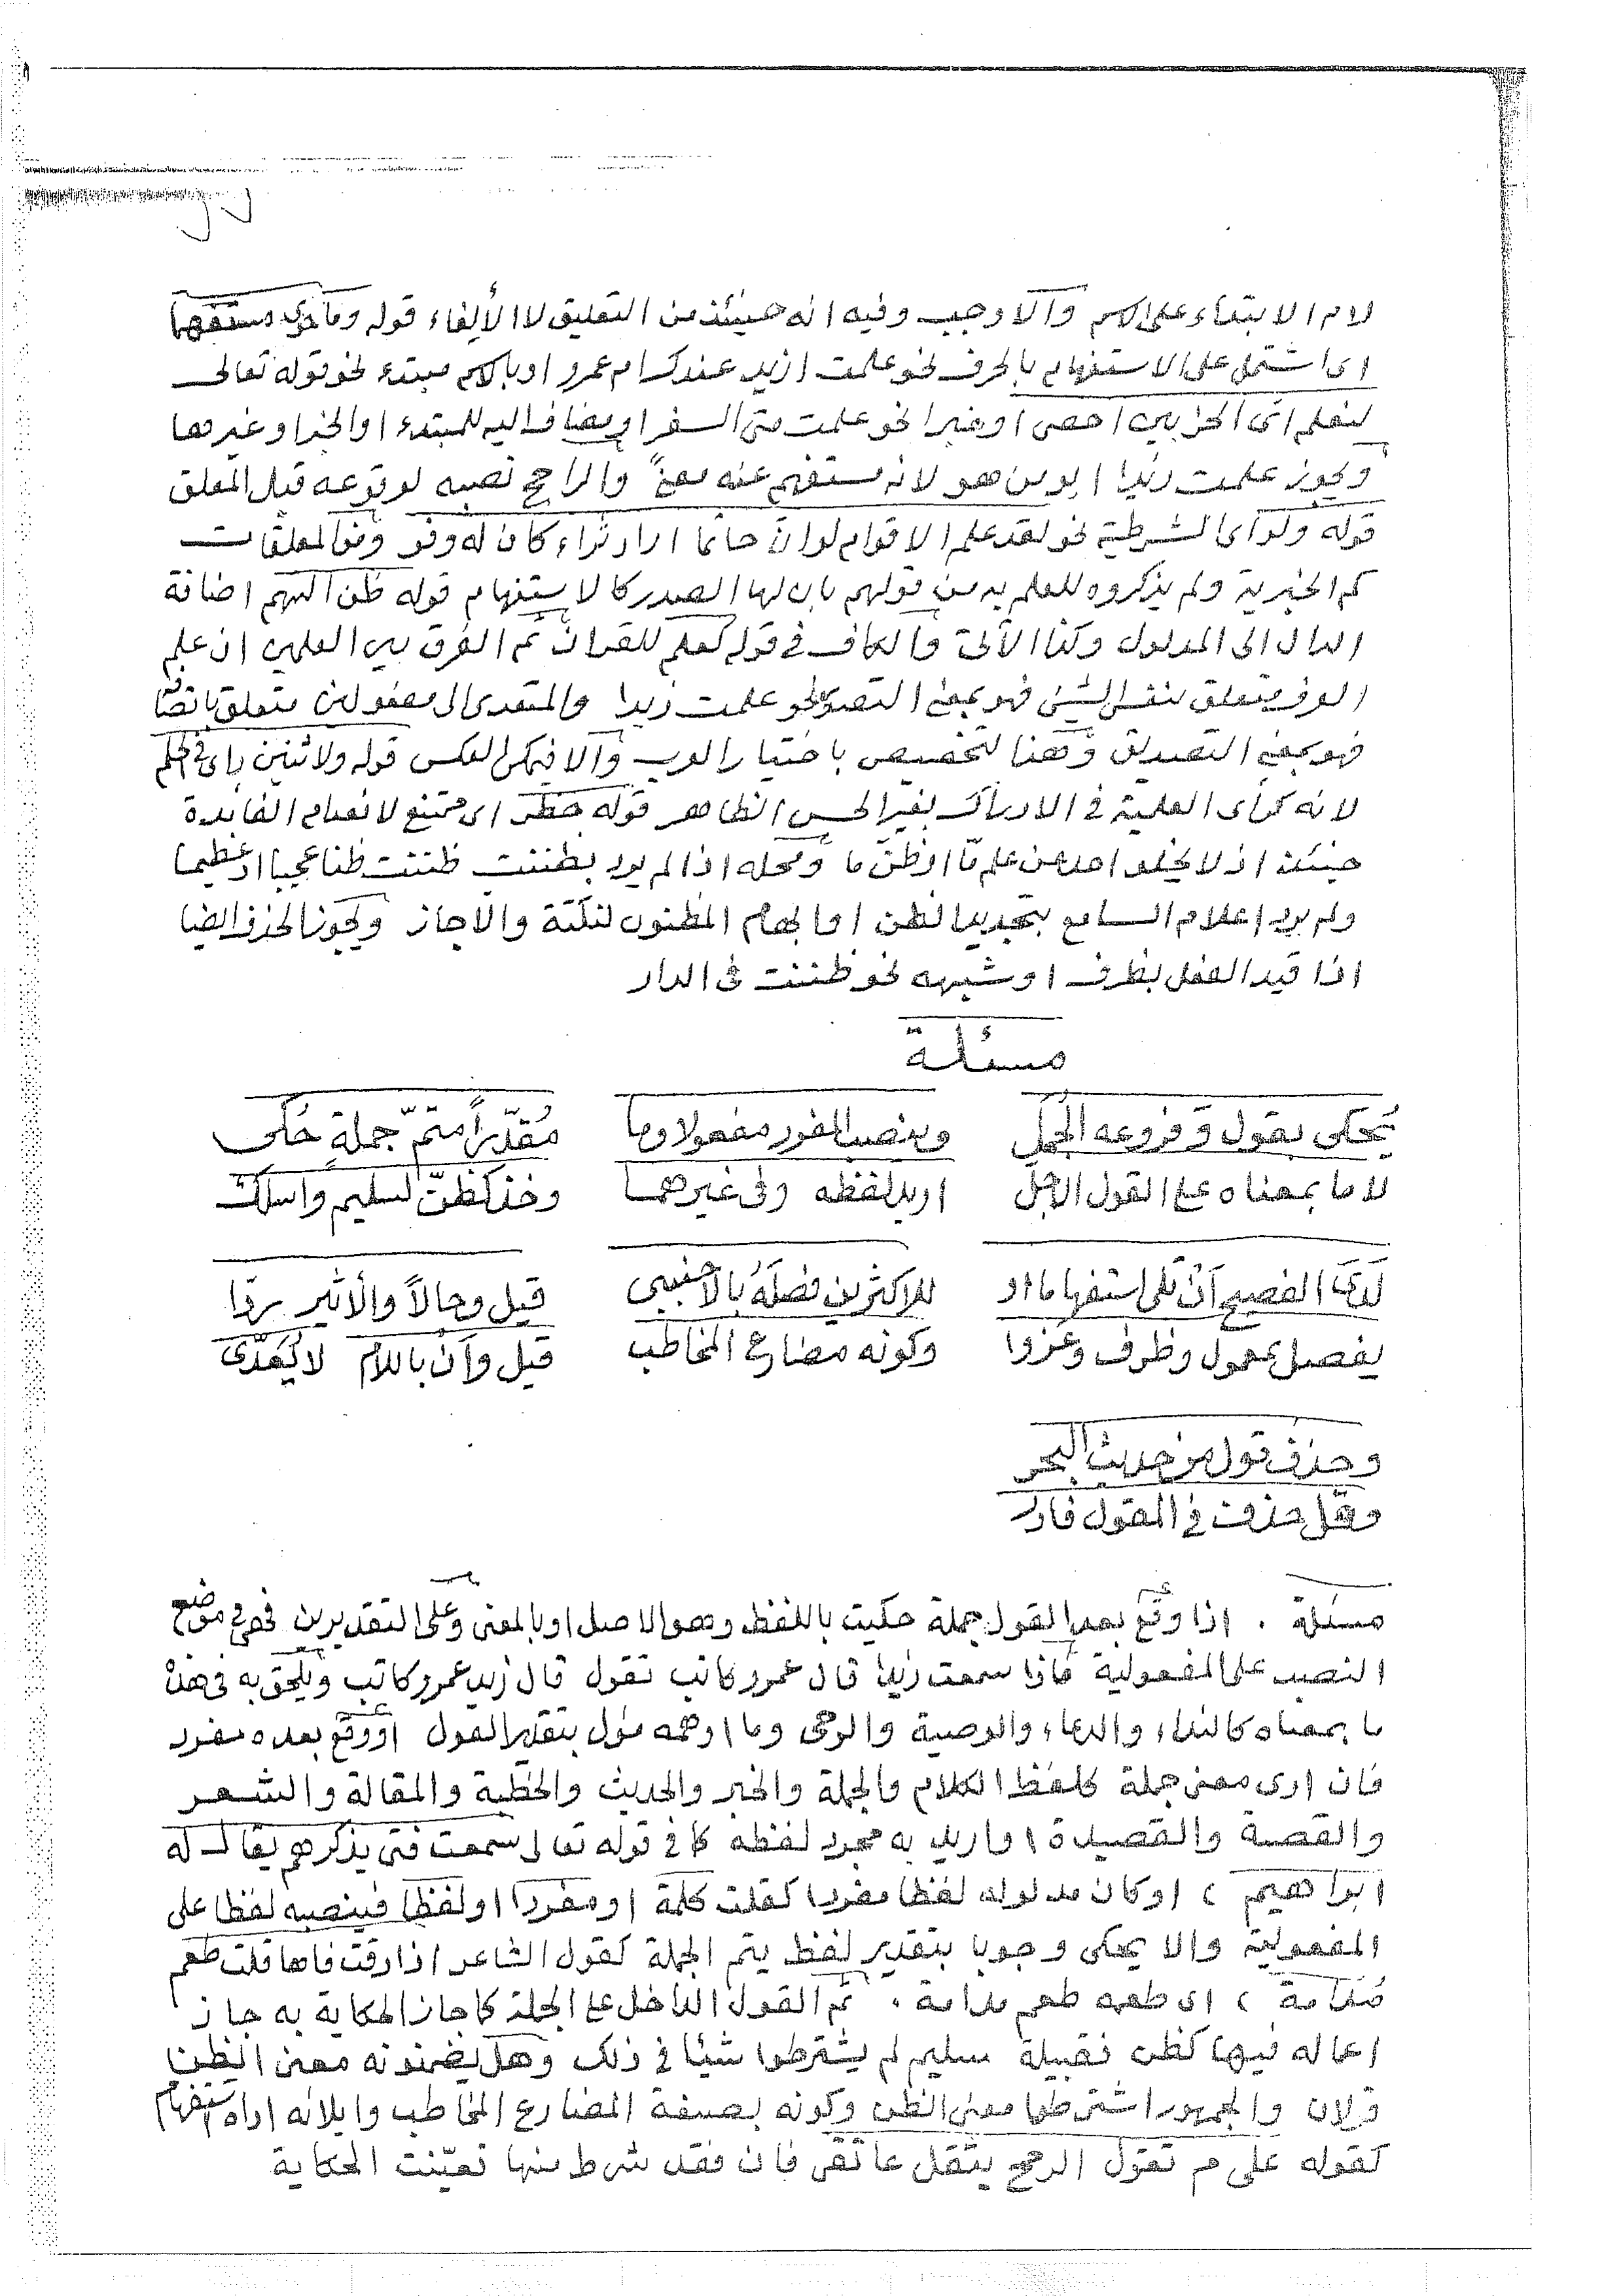 لام الابتداء على الاسم والا وجب وفيه انه حينئذ من التعليق لا الألغاء قوله وما حوى مستفهما
اى اشتمل على الاستفهام بالحرف نحو علمت ازيد عندك ام عمرو او بالاسم مبتدء نحو قوله تعالى
لنعلم اى الحزبين احصى او خبرا نحو علمت متى السفر او مضاف اليه للمبتدء او الخبر او غيرهما
ويجوز علمت زيدا ابو من هو لانه مستفهم عنه معنىً والراجح نصبه لوقوعه قبل المعلق
قوله ولو اى الشرطية نحو لقد علم الاقوام لو انّ حاتما اراد ثراء كان له وفر ومن المعلقات
كم الخبرية ولم يذكروه للعلم به من قولهم بان لها الصدر كالاستفهام قوله ظن التهم اضافة
الدال الى المدلول وكذا الآتى والكاف في قوله كعلم للقران ثم الفرق بين العلمين ان علم
العرف يتعلق بنفس الشئ فهو بمعنى التصور نحو علمت زيدا والمتعدى الى مفعولين يتعلق باتصا
فهو بمعنى التصديق وهذا التخصيص باختيار العرب والا فيمكن العكس قوله ولاثنين راى في الحلم
لانه كرأى العلمية في الادراك بغير الحس الظاهر قوله حظر اى ممتنع لانعدام الفائدة
حينئذ اذ لا يخلو احد من علم مّا او ظن ما ومحله اذا لم يرد بظننت ظننت ظنا عجيبا او عظيما
ولم يرد اعلام السامع بتجديد الظن او ابهام المظنون لنكتة والا جاز ويجوز الحذف ايضا
اذا قيد الفعل بظرف او شبهه نحو ظننت في الدار
مسئلة
يُحكى بقول وفروعه الجمل وينصب المفرد مفعولا وما مُقدّراً متمّ جملة حُكى
لا ما بمعناه على القول الاجل اريد لفظه وفى غيرهما وخذ كظنّ لسليم واسلك
لَدَى الفصيح أنْ تلى استفهاما او للاكثرين فصلهُ بالأجنبي قيل وحالاً والأثير ردّا
يفصل بمعمول وظرف وعزوا وكونه مضارع المخاطب قيل وأن باللام لا يُعَدّى
وحذف قول من حديث البحر
وقل حذف في المقول فادر
مسئلة . اذا وقع بعد القول جملة حكيت باللفظ وهو الاصل او بالمعنى وعلى التقديرين فهى في موضع
النصب على المفعولية فاذا سمعت زيدا قال عمرو كاتب تقول قال زيد عمرو كاتب ويلحق به في هذا
ما بمعناه كالنداء والدعاء والوصية والوحى وما اوهمه مئول بتقدير القول او وقع بعده مفرد
فان ادى معنى جملة كلفظ الكلام والجملة والخبر والحديث والخطبة والمقالة والشعر
والقصة والقصيدة او اريد به مجرد لفظه كما في قوله تعالى سمعت فتى يذكرهم يقال له
ابراهيم ، او كان مدلوله لفظا مفردا كقلت كلمة او مفردا او لفظا فينصبه لفظا على
المفعولية والا يحكى وجوبا بتقدير لفظ يتم الجملة كقول الشاعر اذا ذقت فاها قلت طعم
مُدامة ، اى طعمه طعم مدامة . ثم القول الداخل على الجملة كما جاز الحكاية به جاز
اعماله فيها كظن فقبيلة سليم لم يشترطوا شيئا في ذلك وهل يضمنونه معنى الظن
قولان والجمهور اشترطوا معنى الظن وكونه بصيغة المضارع المخاطب وايلائه اداة استفهام
كقوله على م تقول الرمح يثقل عاتقى فان فقد شرط منها تعيّنت الحكاية